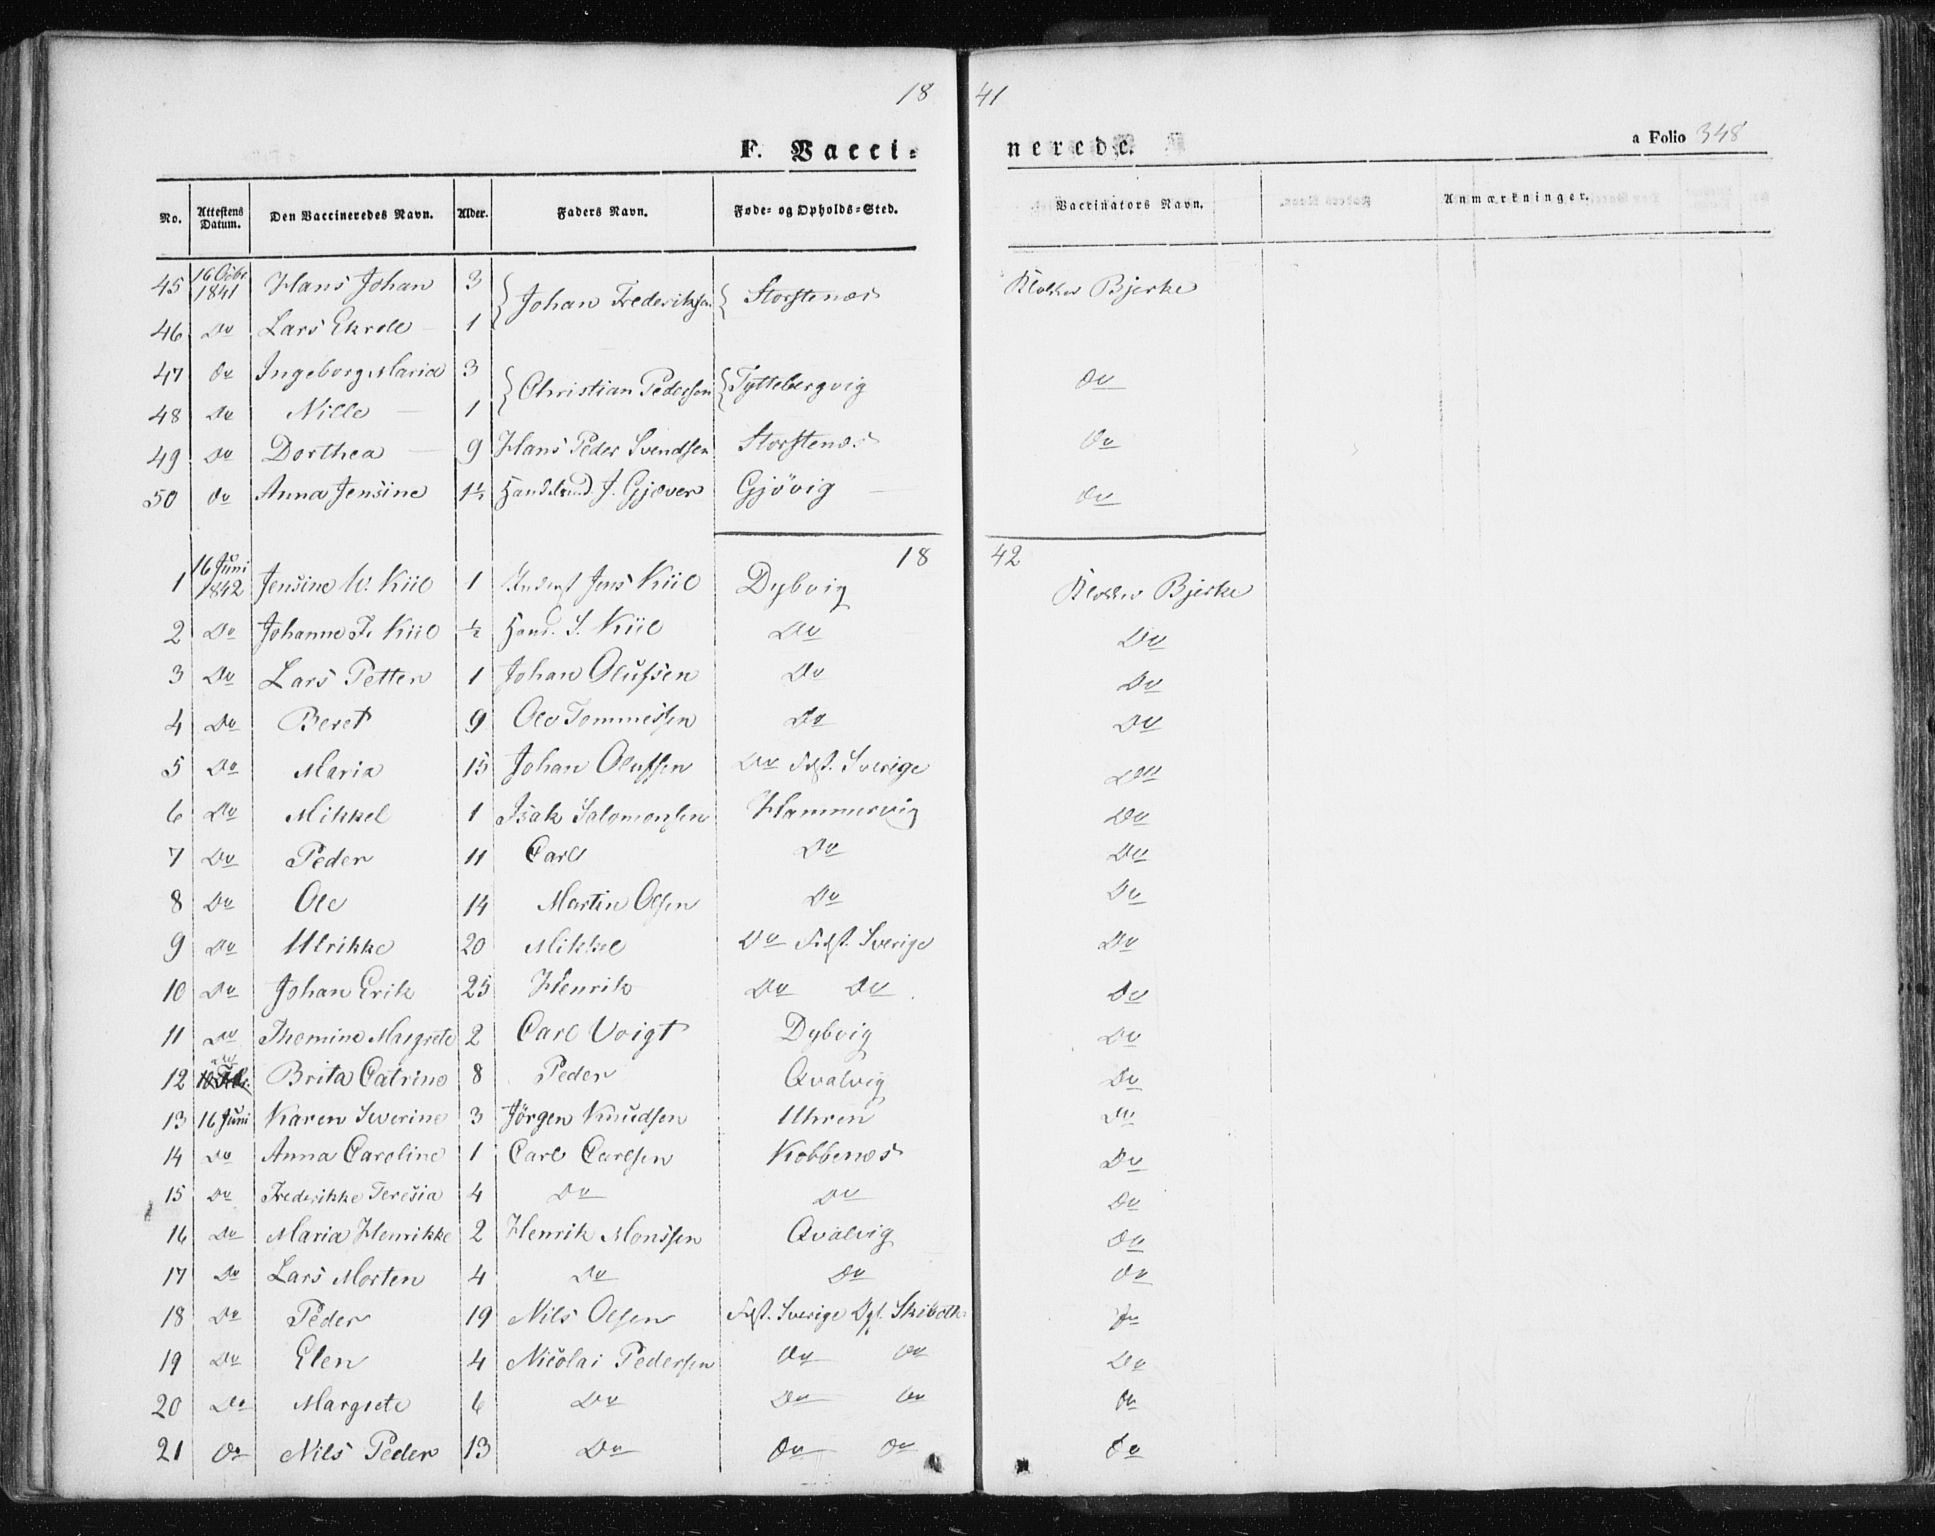 18 41
F. Vacci- nerede. a Folio 348
No. Attestens Datum. Den Vaccineredes Navn. Alder. Faders Navn. Føde- og Opholds-Sted. Vaccinators Navn. Anmærkninger.
45 16 Octbr 1841 Hans Johan 3 Johan Frederiksen Storstenæs Klokker Bjerke
46 Do Lars Ekrell 1
47 Do Ingeborg Maria 3 Christian Pedersen Tyttebergvig Do
48 Do Nille 1
49 Do Dorthea 9 Hans Peder Svendsen Storstenæs Do
50 Do Anna Jensine 1½ J. Gjæver Gjövig Do
18 42
1 16 Juni 1842 Jensine W. Kiil 1 Jens Kiil Dybvig Klokker Bjerke
2 Do Johanne F. Kiil ½ Hand. S. Kiil Do Do
3 Do Lars Petter 1 Johan Olufsen Do Do
4 Do Beret 9 Ole Tommessen Do Do
5 Do Maria 15 Johan Olufsen Do Fdst. Sverige Do
6 Do Mikkel 1 Isak Salomonsen Hammervig Do
7 Do Peder 11 Carl Do Do
8 Do Ole 14 Martin Olsen Do Do
9 Do Ulrikke 20 Mikkel Do Fdst. Sverige Do
10 Do Johan Erik 25 Henrik Do Do Do
11 Do Themine Margrete 2 Carl Voigt Dybvig Do
12 Brita Catrine 8 Peder Qvalvig Do
13 16 Juni Karen Severine 3 Jörgen Knudsen Uhren Do
14 Do Anna Caroline 1 Carl Carlsen Kobbenæs Do
15 Do Frederikke Teresia 4 Do Do Do
16 Do Maria Henrikke 2 Henrik Monssen Qvalvig Do
17 Do Lars Morten 4 Do Do Do
18 Do Peder 19 Nils Olsen Fdst. Sverige Skibotn Do
19 Do Elen 4 Nicolai Pedersen Do Do Do
20 Do Margrete 6 Do Do Do Do
21 Do Nils Peder 13 Do Do Do Do